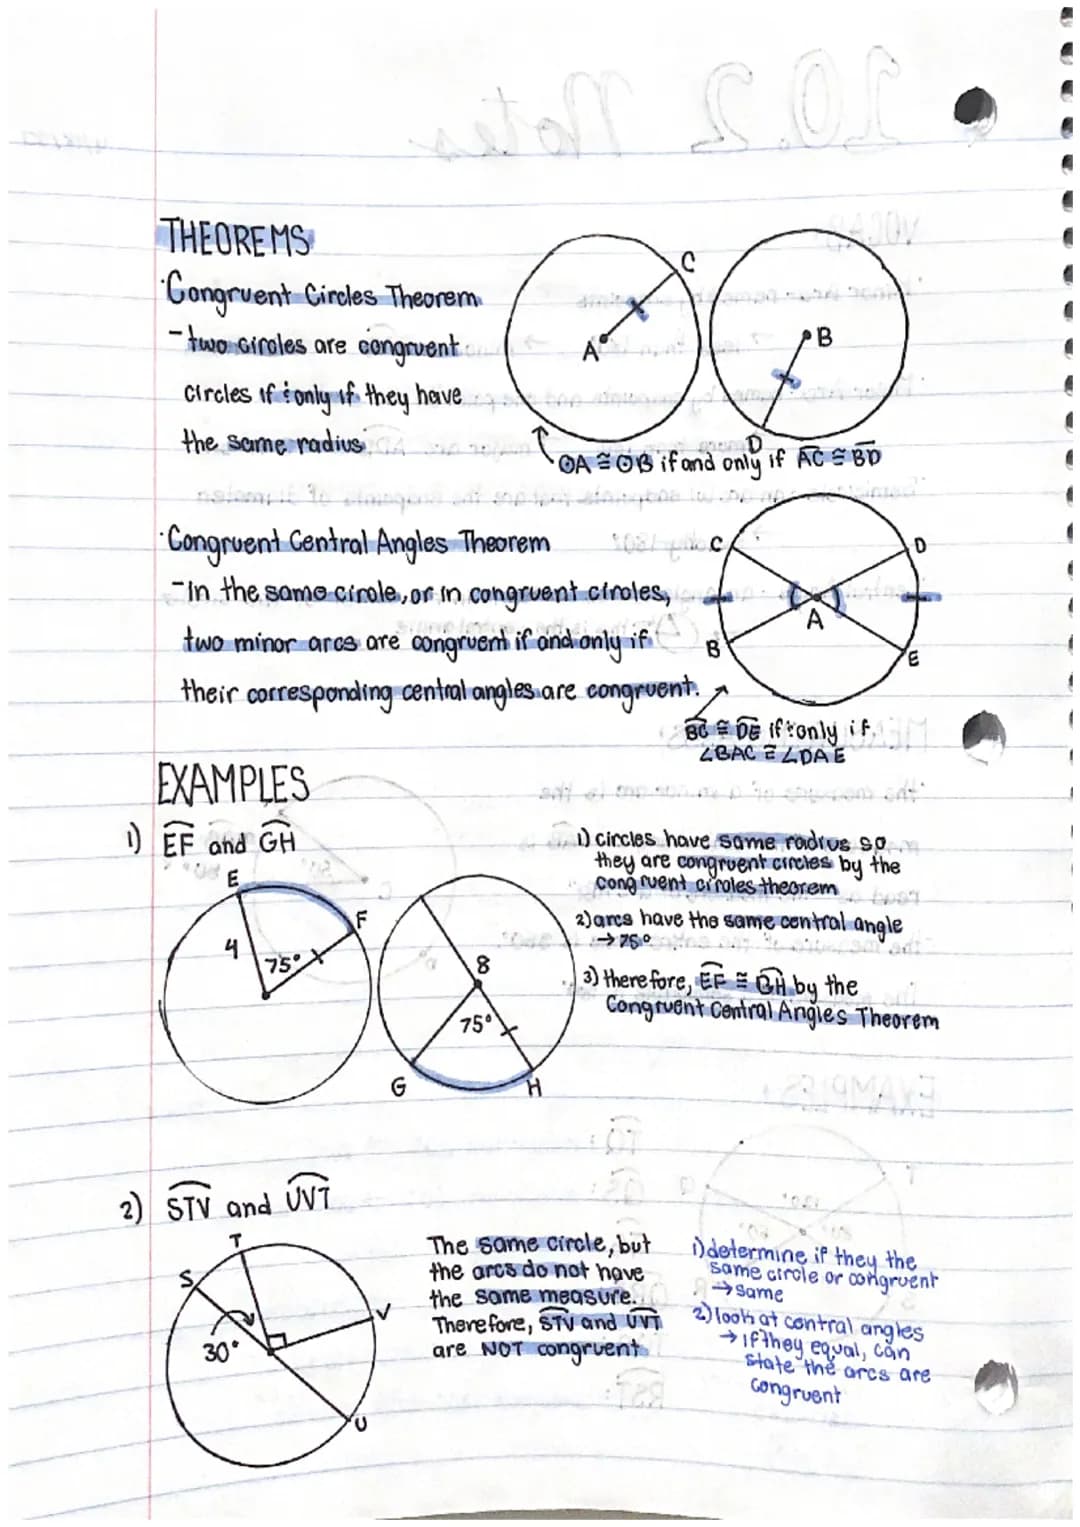 THEOREMS
·Congruent Circles Theorem
-two circles are congruent
circles if & only if they have
the same radius
A
C
B
D
⊙A ≅ ⊙B if and only if AC ≅ BD
·Congruent Central Angles Theorem
-in the same circle, or in congruent circles,
two minor arcs are congruent if and only if
their corresponding central angles are congruent.
C
D
A
B
E
BC ≅ DE if & only if
∠BAC ≅ ∠DAE
EXAMPLES
1) EF and GH
E
F
4
75°
8
75°
G
H
1) circles have same radius so
they are congruent circles by the
congruent circles theorem
2) arcs have the same central angle
→ 75°
3) therefore, EF ≅ GH by the
Congruent Central Angles Theorem
2) STV and UVT
T
S
V
30°
U
The same circle, but
the arcs do not have
the same measure.
Therefore, STV and UVT
are NOT congruent
1) determine if they the
same circle or congruent
→ same
2) look at central angles
→ if they equal, can
state the arcs are
congruent